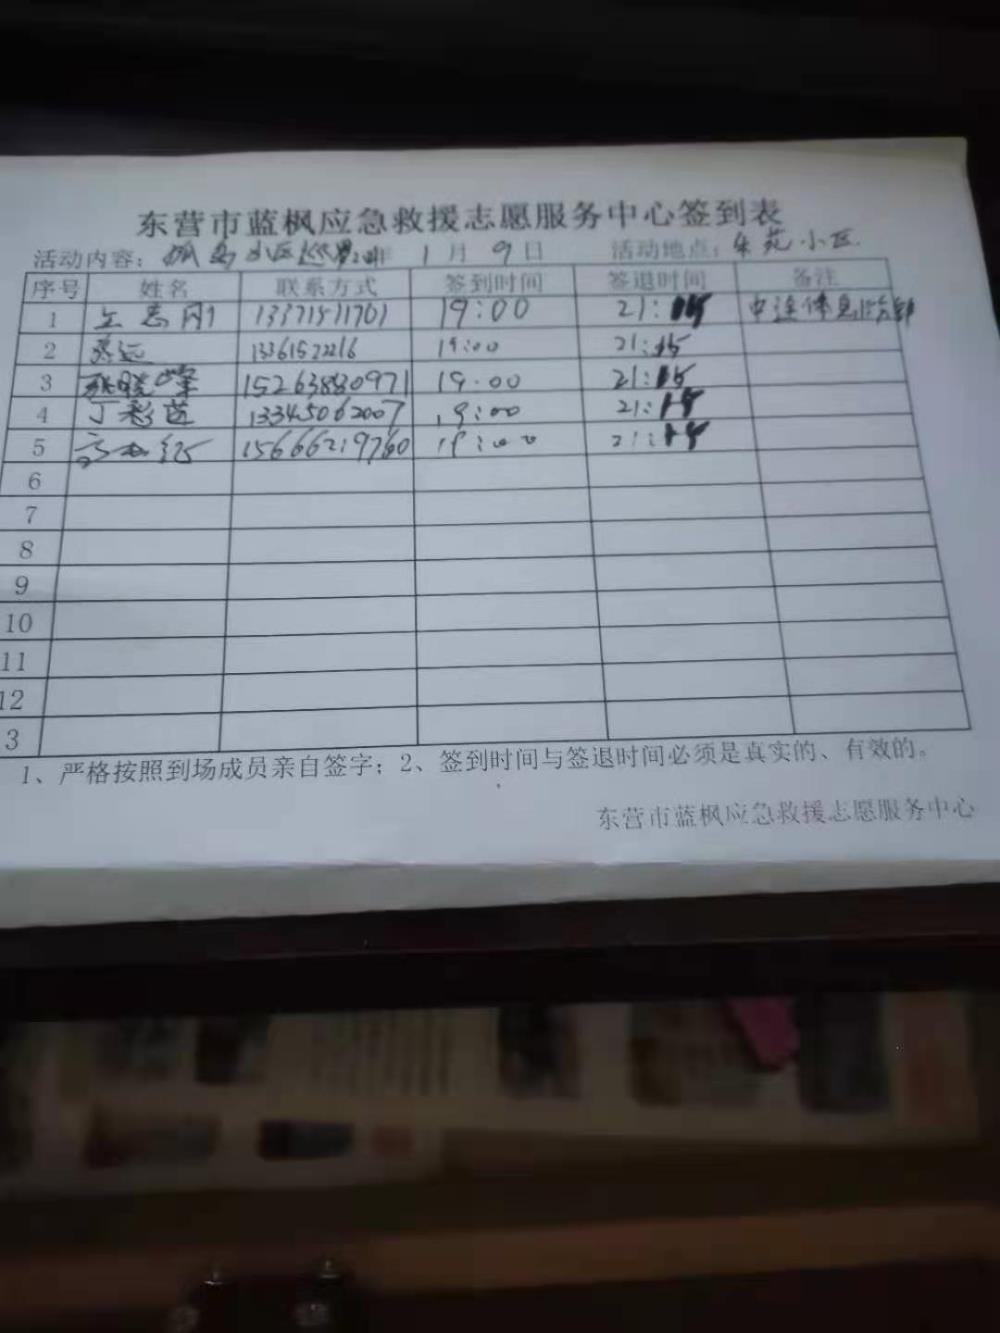 东营市蓝枫应急救援志愿服务中心签到表
活动内容：孤岛小区巡逻 年 1 月 9 日 活动地点： 苑小区
序号 姓名 联系方式 签到时间 签退时间 备注
1 志刚 13371511701 19:00 21:15
2 远 13361522216 19:00 21:15
3 张晓峰 15263880971 19:00 21:15
4 丁彩莲 13345062007 19:00 21:15
5 15666219760 19:00 21:15
6
7
8
9
10
11
12
3
1、严格按照到场成员亲自签字；2、签到时间与签退时间必须是真实的、有效的。
东营市蓝枫应急救援志愿服务中心